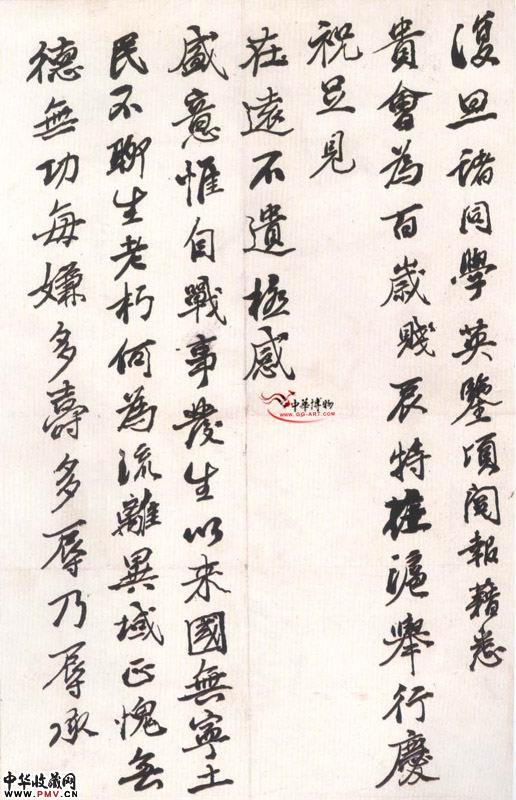 復旦諸同學英鑒頃閱報藉悉
貴會為百歲賤辰特在滬舉行慶
祝足見
在遠不遺極感
盛意惟自戰事發生以來國無寧土
民不聊生老朽何為流離異域正愧無
德無功每嫌多壽多辱乃辱承
中華博物
www.gg-art.com
中华收藏网
www.PMV.CN